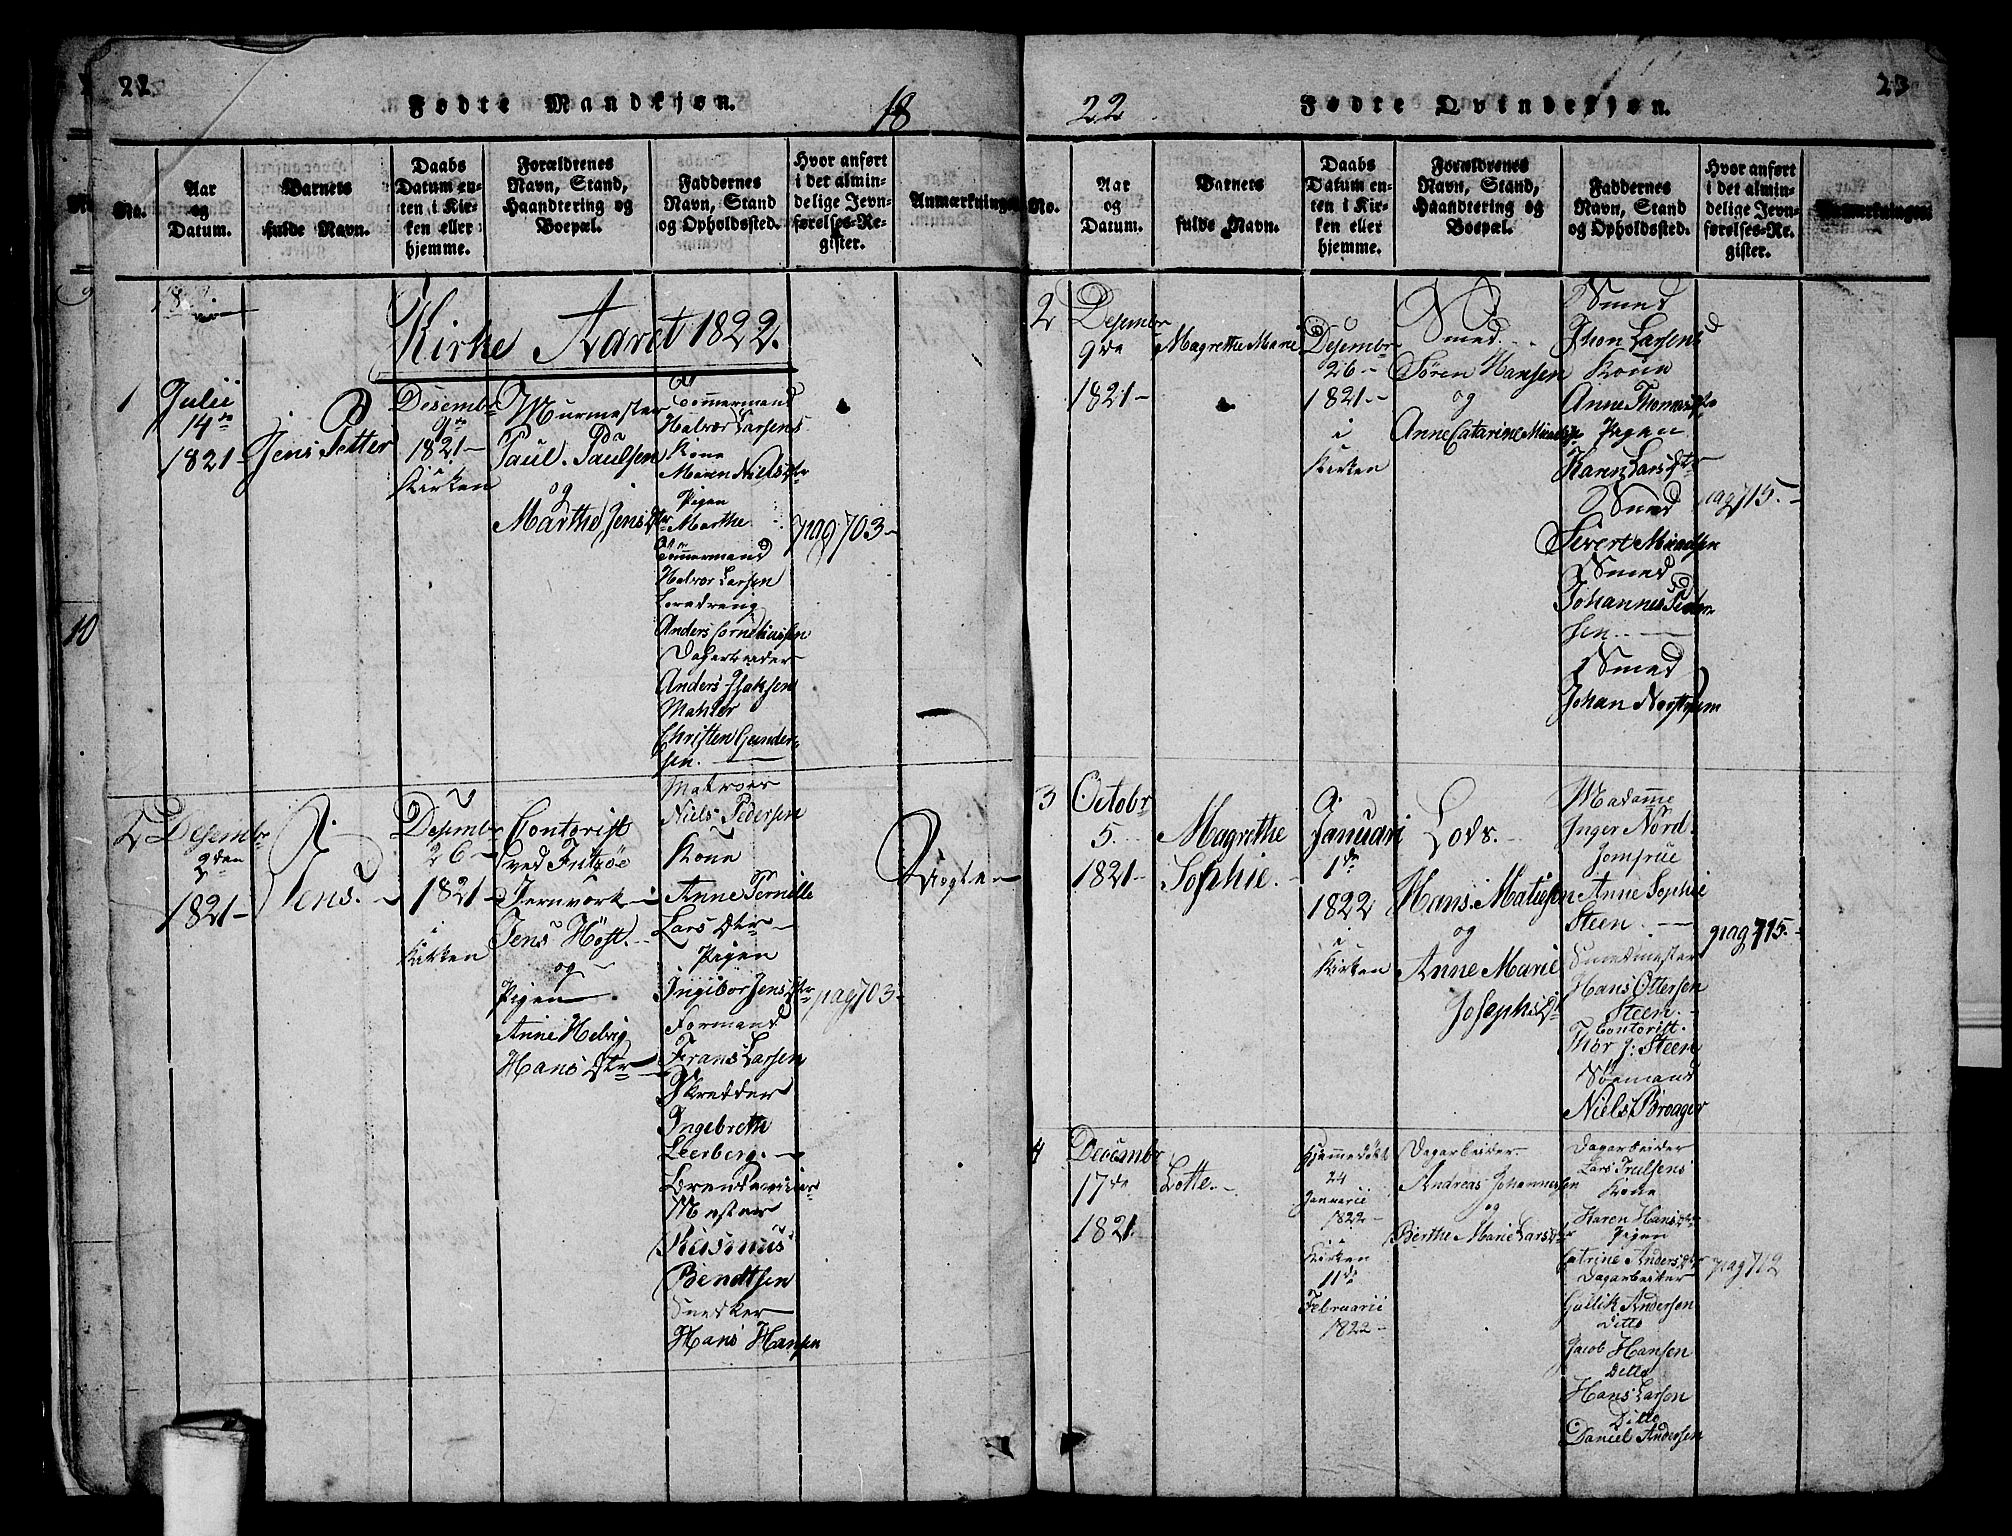 22
Fødte Mandkjøn.
18
No.
Aar og Datum.
Barnets fulde Navn.
Daabs Datum enten i Kirken eller hjemme.
Forældrenes Navn, Stand, Haandtering og Boepæl.
Faddernes Navn, Stand og Opholdssted.
Hvor anført i det almindelige Jevnførelses-Register.
Anmærkninger.
Kirke Aaret 1822.
1
Julii
14de
1821-
Jens Petter
Desembr
9de
1821-
Kirken
Muurmester
Paul Paulsen
og
Marthe Jens Dtr
Tømmermand
Halvor Larsens
Kone
Maren Niels Dtr
Pigen
Marthe
Tømmermand
Halvor Larsen
Anders Corneliussen
Dagarbeider
Anders Isaksen
Mahler
Christen Gunder-
sen.
pag 703-
2
Desembr
9den
1821-
Jens.
Desembr
26-
1821-
i
Kirken
Contorist
ved Fritzøe
Jernværk
Jens Høst.
og
Pigen
Anne Helvig
Hans Dtr
Matroes
Niels Pedersen
Kone
Anne Pernille
Lars Dtr
Pigen
Ingibor Jens Dtr
Formand
Frans Larsen
Skredder
Ingebreth
Leerberg.
Mester
Rasmus
Bendtsen
Snedker
Hans Hansen
pag 703-
Uægte
23
22
Fødte Qvindekjøn.
No.
Aar og Datum.
Barnets fulde Navn.
Daabs Datum enten i Kirken eller hjemme.
Forældrenes Navn, Stand, Haandtering og Boepæl.
Faddernes Navn, Stand og Opholdssted.
Hvor anført i det almindelige Jevnførelses-Register.
Anmærkninger.
2
Desembr
9de
1821-
Magrethe Marie
Desembr
26-
1821-
i
Kirken
Smed
Søren Hansen
og
Anne Catarine
Smed
Jhon Larsens
Kone
Anne Thomas Dtr
Pigen
Karen Lars Dtr
Smed
Sivert
Smed
Johannes Peder-
sen.
Smed
Johan
pag 715.
3
Octobr
5.
1821-
Magrethe
Sophie.
Januari
1de
1822
i
Kirken
Lods.
Hans Matieson
og
Anne Marie
Josephs Dtr
Madamme
Inger Nord.
Jomfrue
Anne Sophie
Steen.
Smedmester
Hans Ottersen
Steen.
Contorist.
Thor J: Steen
Sømand
Niels Broager
pag 715.
4
Decembr
17de
1821
Lotte.
Hjemmedøbt
24
Januarii
1822-
i
Kirken
11de
Februarii
1822-
Dagarbeider
Andreas Johannessen
og
Berthe Marie Lars Dtr
Dagarbeider
Lars Trulsens
Kone
Karen Hans Dtr
Pigen
Catrine Anders Dtr
Dagarbeider
Gullik Andersen
Ditto
Jacob Hansen
Ditto
Hans Larson
Ditto
Daniel Andersen
pag 712
10